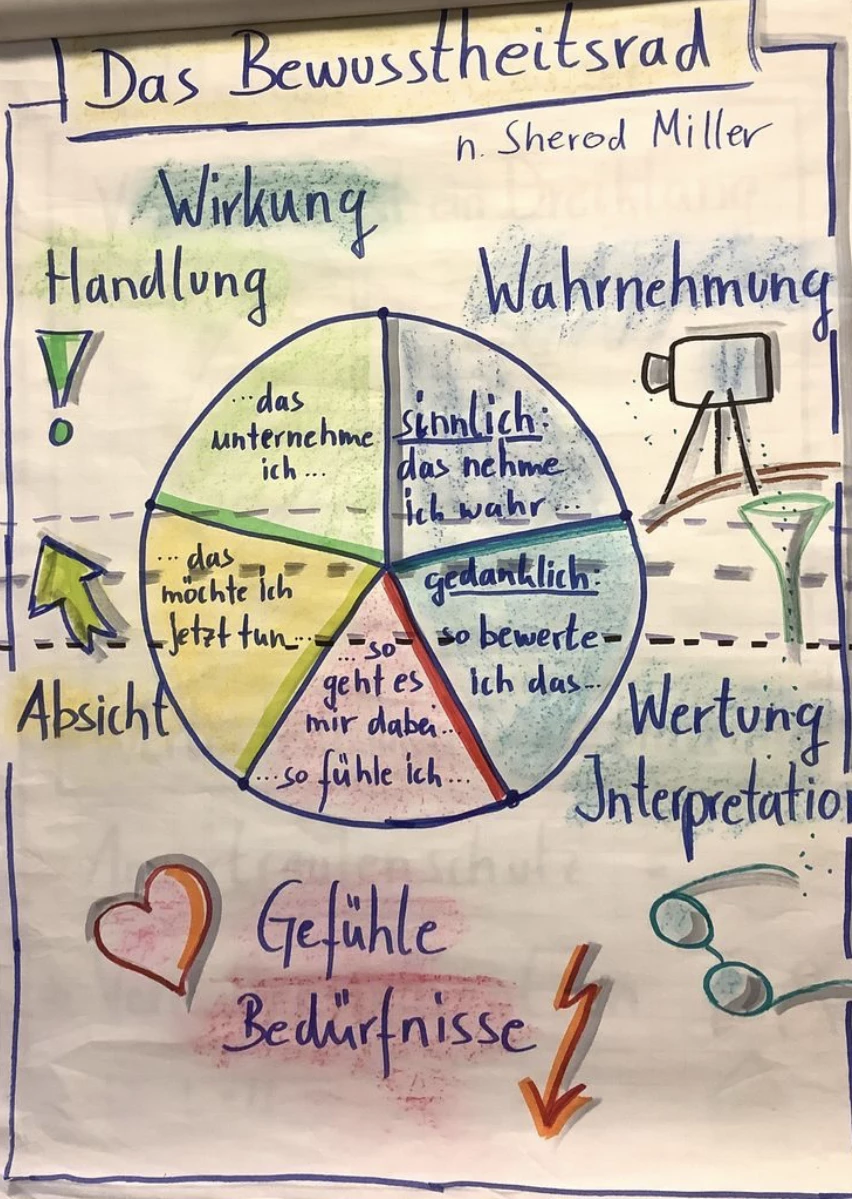 Das Bewusstheitsrad
n. Sherod Miller
Wirkung
Handlung
Wahrnehmung
...das
unternehme
ich...
sinnlich:
das nehme
ich wahr...
... das
möchte ich
jetzt tun...
gedanklich:
so bewerte
ich das...
... so
geht es
mir dabei...
...so fühle ich...
Absicht
Wertung
Interpretation
Gefühle
Bedürfnisse